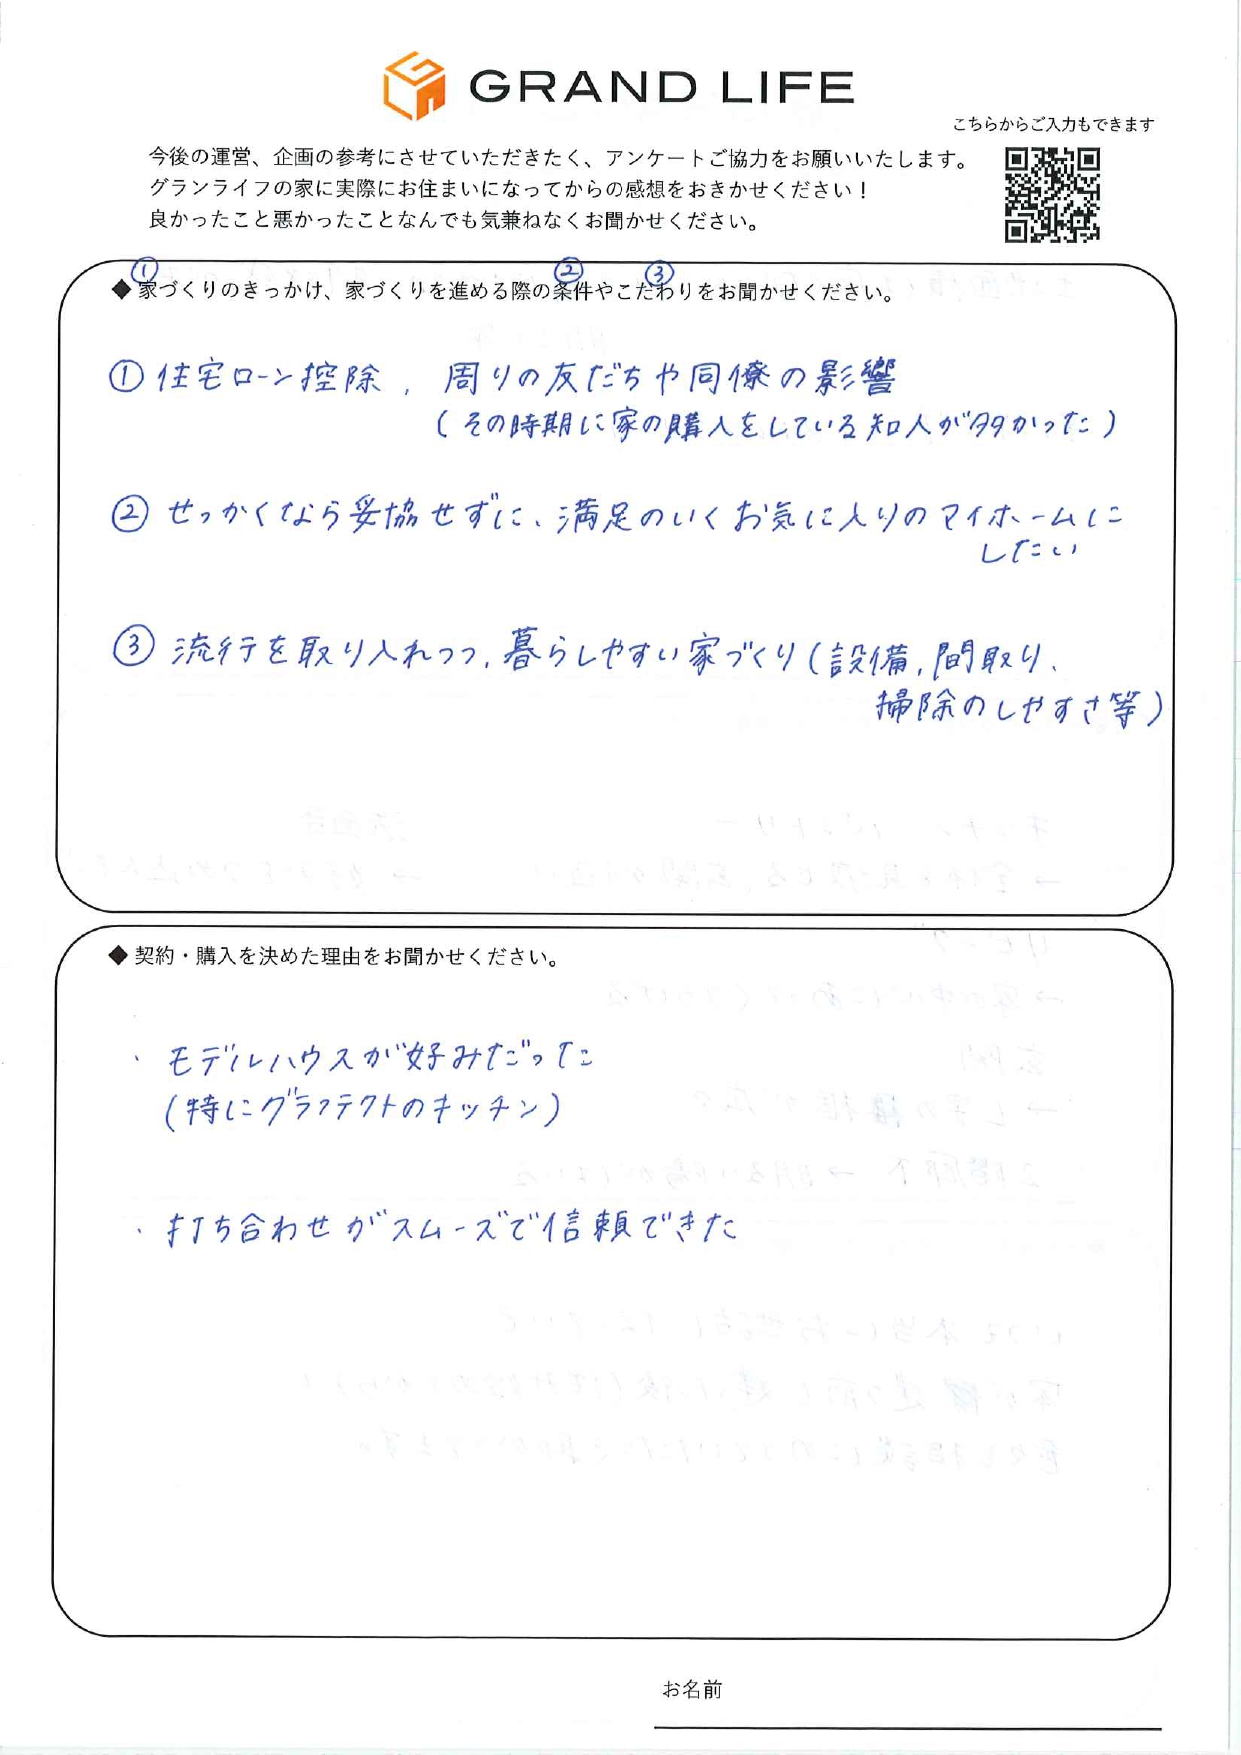 GRAND LIFE
こちらからご入力もできます
今後の運営、企画の参考にさせていただきたく、アンケートご協力をお願いいたします。
グランライフの家に実際にお住まいになってからの感想をおきかせください！
良かったこと悪かったことなんでも気兼ねなくお聞かせください。
① ② ③
◆家づくりのきっかけ、家づくりを進める際の条件やこだわりをお聞かせください。
①住宅ローン控除, 周りの友だちや同僚の影響
(その時期に家の購入をしている知人が多かった)
② せっかくなら妥協せずに、満足のいくお気に入りのマイホームに
したい
③ 流行を取り入れつつ, 暮らしやすい家づくり(設備, 間取り、
掃除のしやすさ等)
◆契約・購入を決めた理由をお聞かせください。
・ モデルハウスが好みだった
(特にグラフテクトのキッチン)
・ 打ち合わせがスムーズで信頼できた
お名前